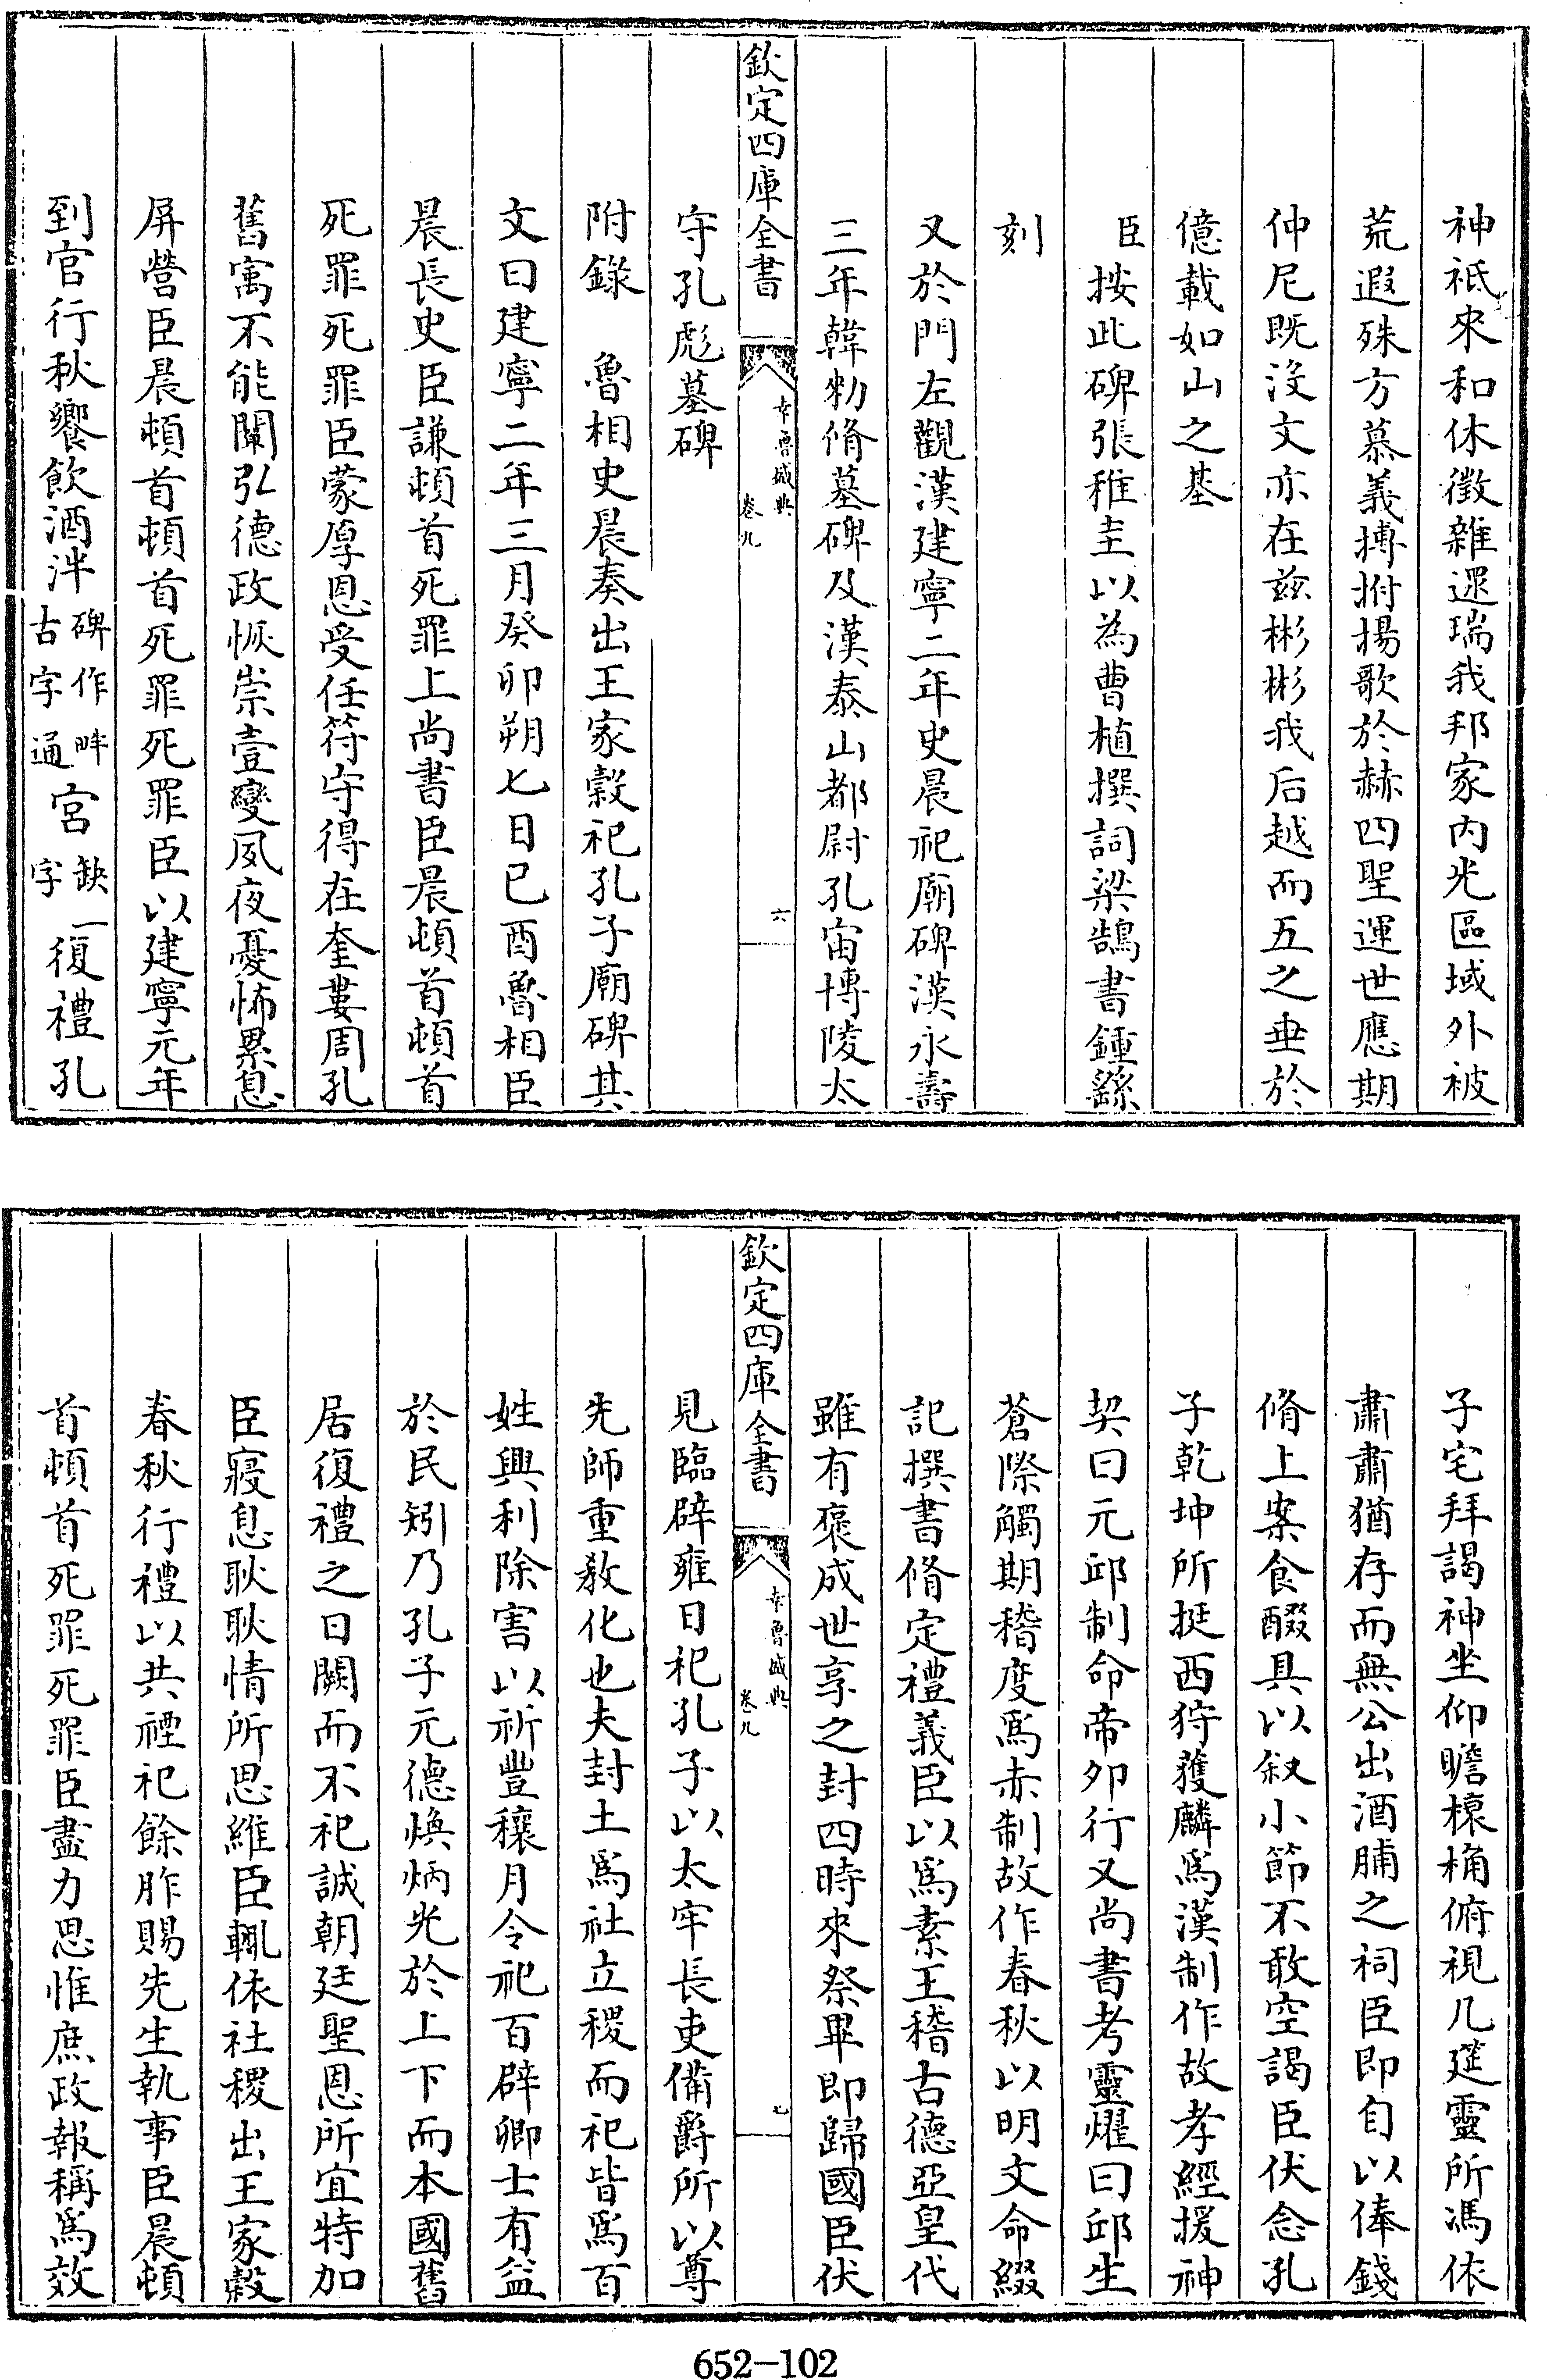 神祇來和休徵雜遝瑞我邦家内光區域外被
荒遐殊方慕義搏拊揚歌於赫四聖運世應期
仲尼既没文亦在兹彬彬我后越而五之垂於
億載如山之基
臣按此碑張稚圭以為曹植撰詞梁鵠書鍾繇
刻
又於門左觀漢建寧二年史晨祀廟碑漢永壽
三年韓勑脩墓碑及漢泰山都尉孔宙博陵太
欽定四庫全書
幸魯盛典
卷九
六
守孔彪墓碑
附錄　魯相史晨奏出王家穀祀孔子廟碑其
文曰建寧二年三月癸卯朔七日己酉魯相臣
晨長史臣謙頓首死罪上尚書臣晨頓首頓首
死罪死罪臣蒙厚恩受任符守得在奎婁周孔
舊寓不能闡弘德政恢崇壹變夙夜憂怖累息
屏營臣晨頓首頓首死罪死罪臣以建寧元年
到官行秋饗飲酒泮碑作畔古字通宮缺一字復禮孔
子宅拜謁神坐仰瞻榱桷俯視几筵靈所馮依
肅肅猶存而無公出酒脯之祠臣即自以俸錢
脩上案食醊具以叙小節不敢空謁臣伏念孔
子乾坤所挺西狩獲麟爲漢制作故孝經援神
契曰元邱制命帝卯行又尚書考靈燿曰邱生
蒼際觸期稽度爲赤制故作春秋以明文命綴
記撰書脩定禮義臣以爲素王稽古德亞皇代
雖有褒成世享之封四時來祭畢即歸國臣伏
欽定四庫全書
幸魯盛典
卷九
見臨辟雍日祀孔子以太牢長吏備爵所以尊
先師重教化也夫封土爲社立稷而祀皆爲百
姓興利除害以祈豐穰月令祀百辟卿士有益
於民矧乃孔子元德煥炳光於上下而本國舊
居復禮之日闕而不祀誠朝廷聖恩所宜特加
臣寢息耿耿情所思維臣輒依社稷出王家穀
春秋行禮以共禋祀餘胙賜先生執事臣晨頓
首頓首死罪死罪臣盡力思惟庶政報稱爲效
652-102